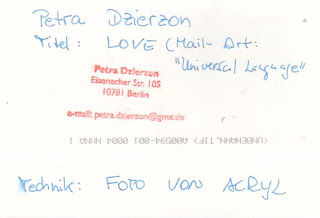 Petra Dzierzon
Titel: LOVE (Mail-Art:
"Universal Language"
Petra Dzierzon
Eisenacher Str. 105
10781 Berlin
e-mail: petra.dzierzon@gmx.de
Technik: FOTO VON ACRYL